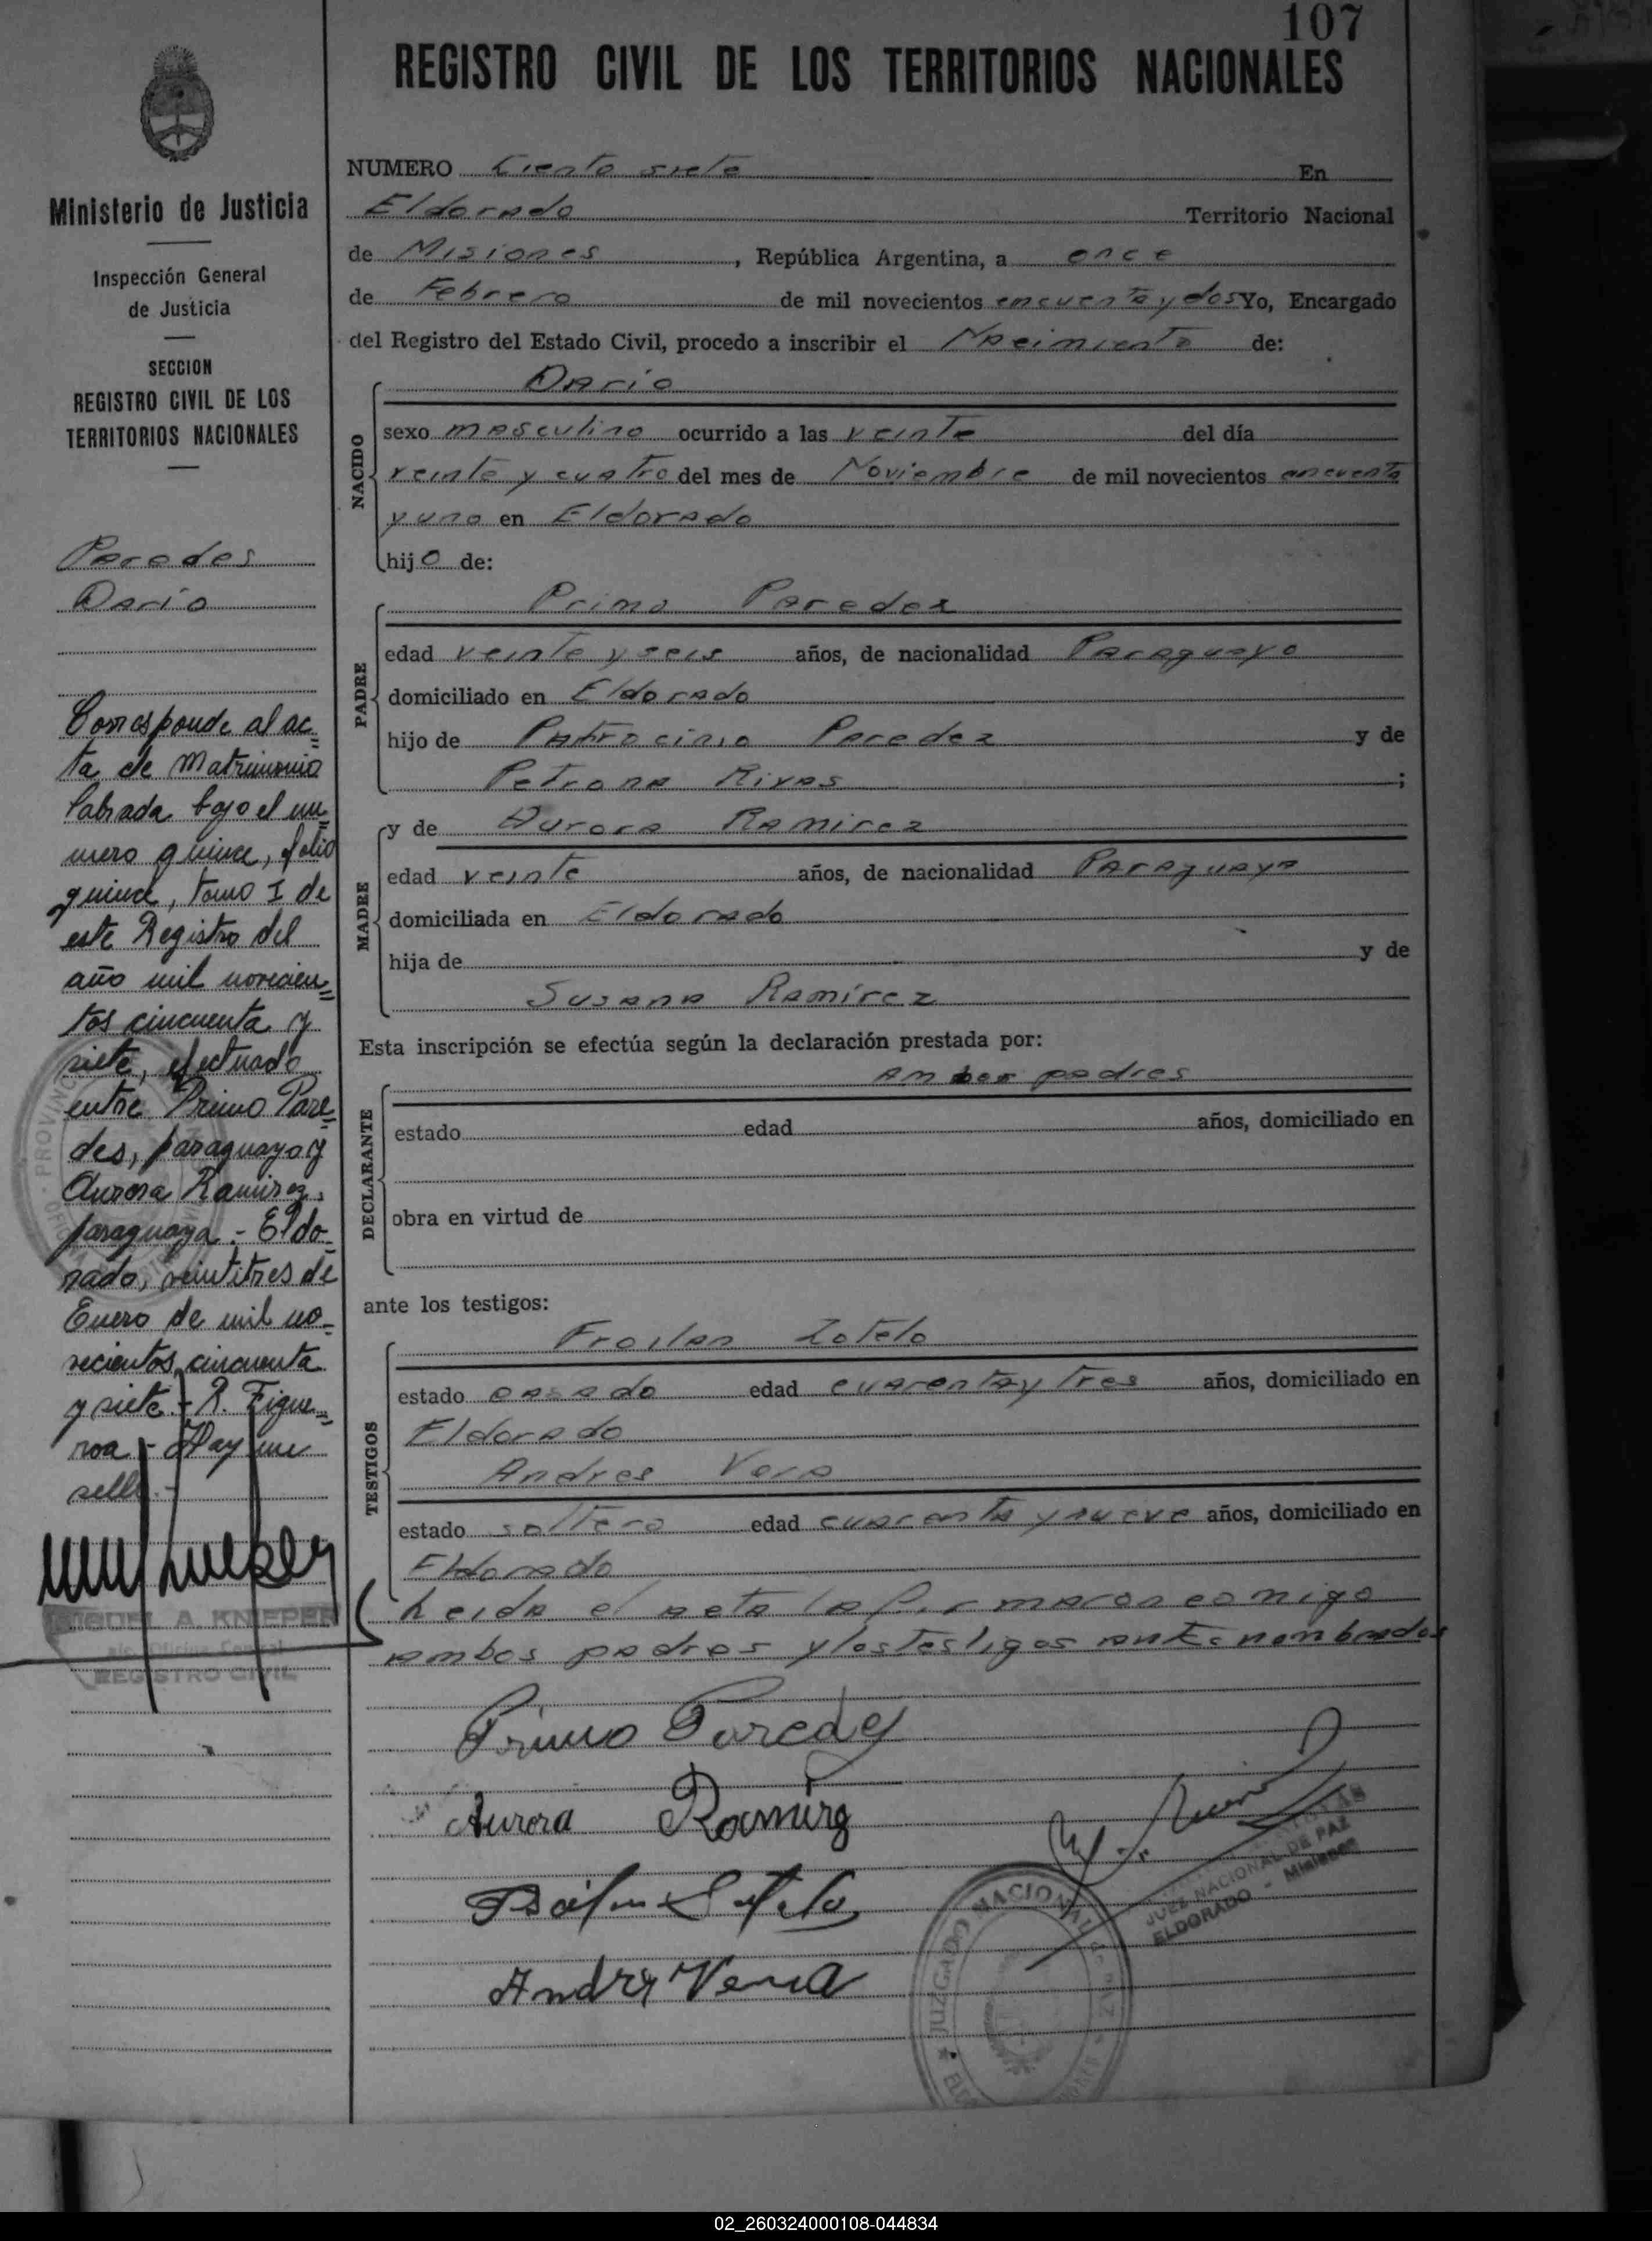 107
REGISTRO CIVIL DE LOS TERRITORIOS NACIONALES
Ministerio de Justicia
Inspección General
de Justicia
SECCION
REGISTRO CIVIL DE LOS
TERRITORIOS NACIONALES
Paredes
Dario
Corresponde al ac=
ta de Matrimonio
labrada bajo el nu=
mero quince, folio
quince, tomo I de
este Registro del
año mil novecien=
tos cincuenta y
siete, efectuado
entre Primo Pare=
des, paraguayo y
Aurora Ramirez,
paraguaya.- Eldo=
rado, veintitres de
Enero de mil no=
vecientos cincuenta
y siete.- R. Figue=
roa - Hay un
sello.-
MIGUEL A. KNIEPER
a/c. Oficina Central
REGISTRO CIVIL
NUMERO Ciento siete En
Eldorado Territorio Nacional
de Misiones, República Argentina, a once
de Febrero de mil novecientos cincuenta y dos Yo, Encargado
del Registro del Estado Civil, procedo a inscribir el Nacimiento de:
NACIDO
Dario
sexo masculino ocurrido a las veinte del día
veinte y cuatro del mes de Noviembre de mil novecientos cincuenta
y uno en Eldorado
hijo de:
PADRE
Primo Paredez
edad veinte y seis años, de nacionalidad Paraguayo
domiciliado en Eldorado
hijo de Patrocinio Paredez y de
Petrona Rivas ;
MADRE
y de Aurora Ramirez
edad veinte años, de nacionalidad Paraguaya
domiciliada en Eldorado
hija de y de
Susana Ramírez
Esta inscripción se efectúa según la declaración prestada por:
DECLARANTE
ambos padres
estado edad años, domiciliado en
obra en virtud de
ante los testigos:
TESTIGOS
Froilan Zotelo
estado casado edad cuarenta y tres años, domiciliado en
Eldorado
Andres Vera
estado soltero edad cuarenta y nueve años, domiciliado en
Eldorado
Leida el acta la firmaron conmigo
ambos padres y los testigos ante nombrados
Primo Paredes
Aurora Ramirez
Andrés Vera
JUEZ NACIONAL DE PAZ
ELDORADO - Misiones
JUZGADO NACIONAL DE PAZ
02_260324000108-044834